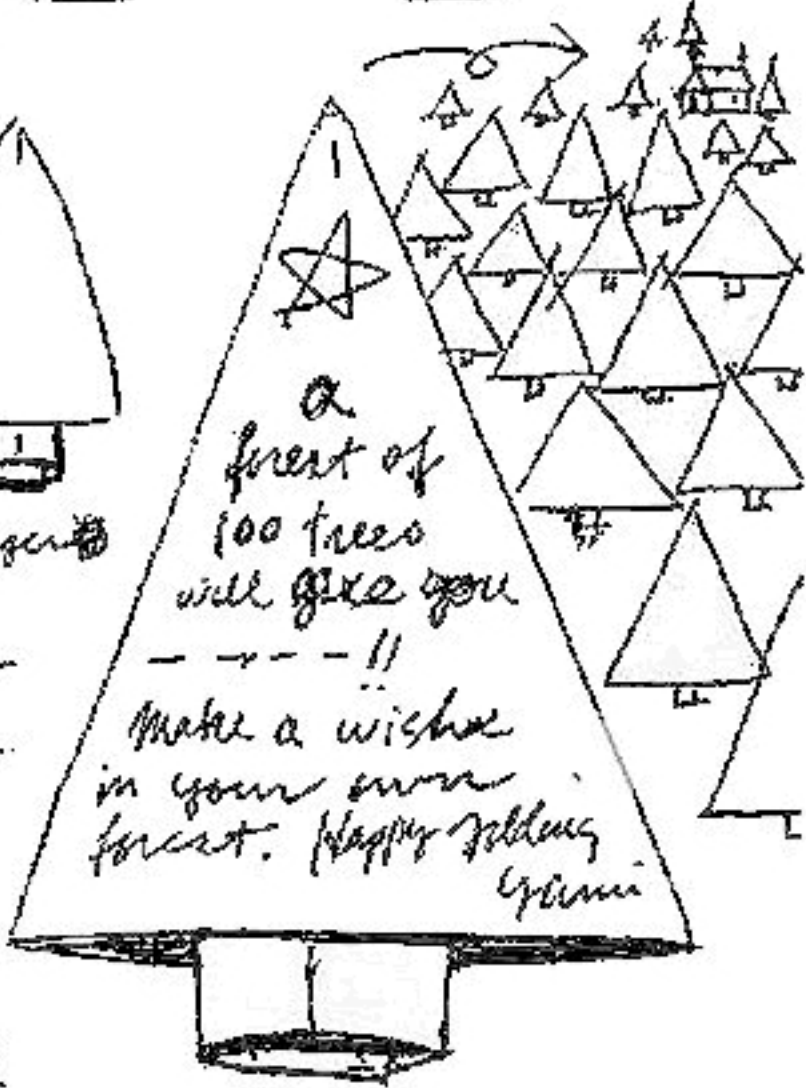 a
forest of
100 trees
will give you
- - - - !!
Make a wish
in your own
forest. Happy Folding
Yami